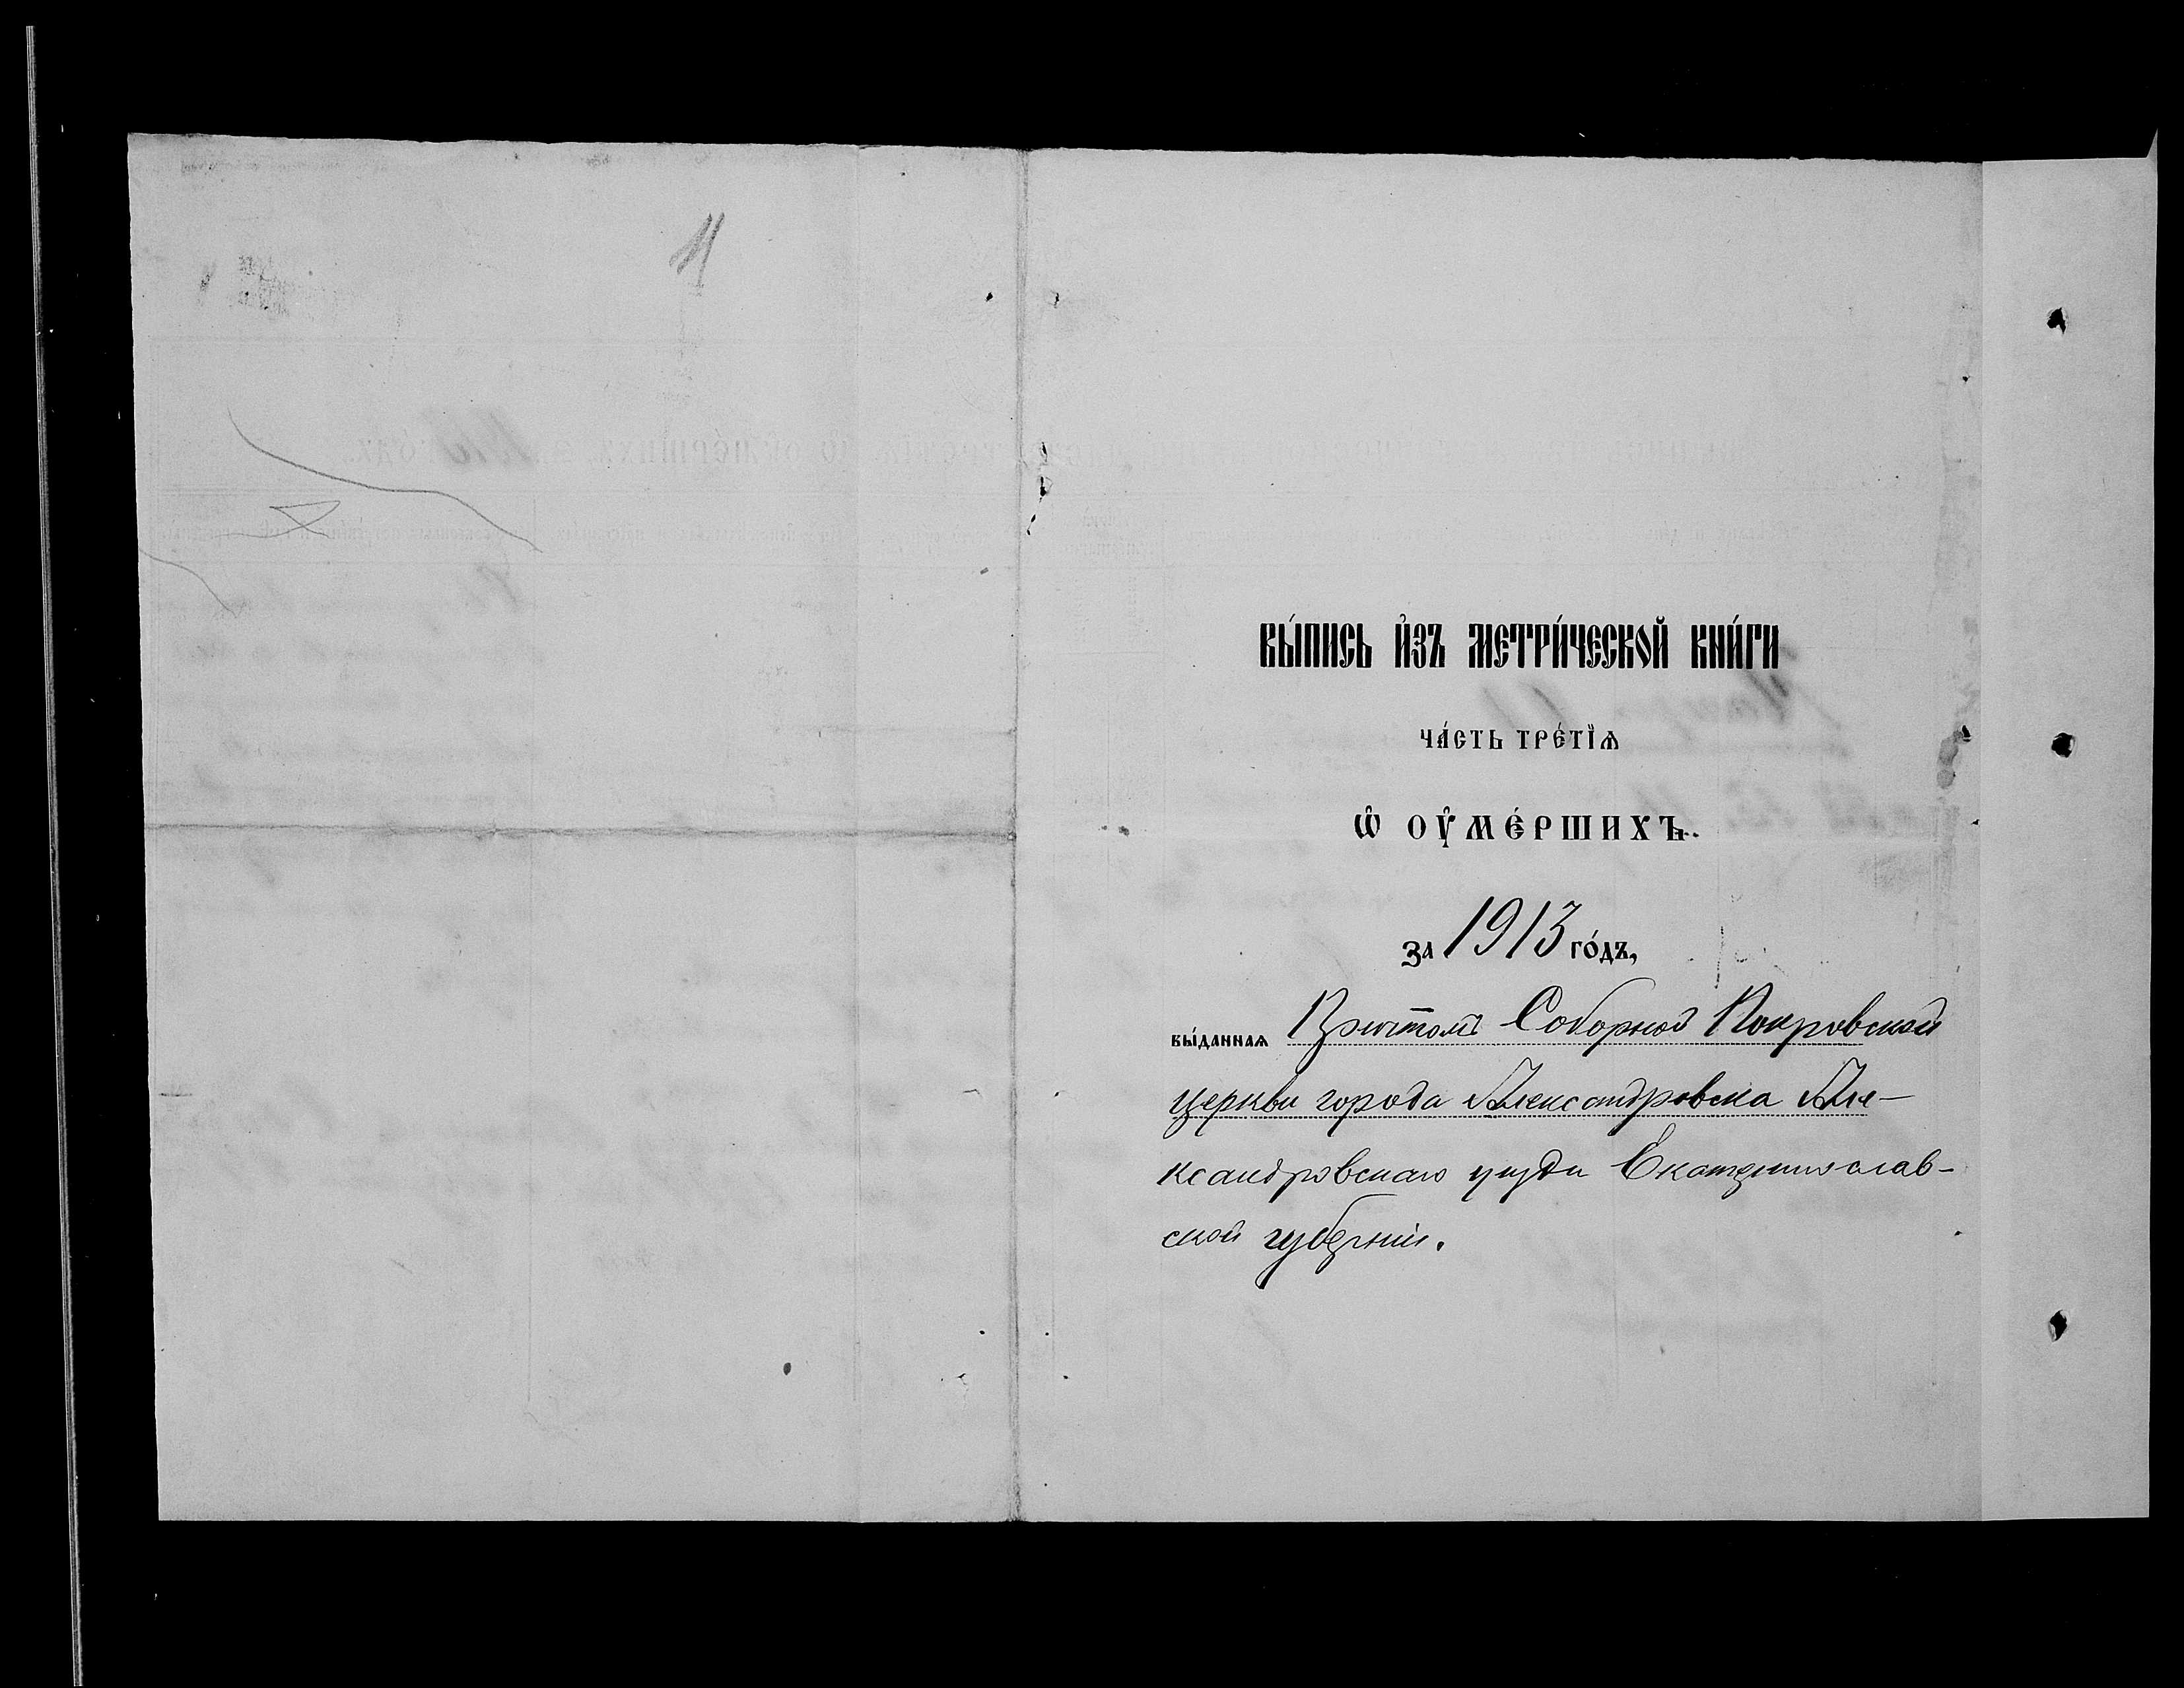 Вы́пись и҆зъ метри́ческой кни́ги
ча́сть тре́тїѧ
Ѡ҆ оу҆ме́ршихъ.
за 1913 го́дъ,
вы́даннаѧ Причтомъ Соборной Покровской
церкви города Александровска Але-
ксандровскаго уѣзда Екатеринослав-
ской губерніи.